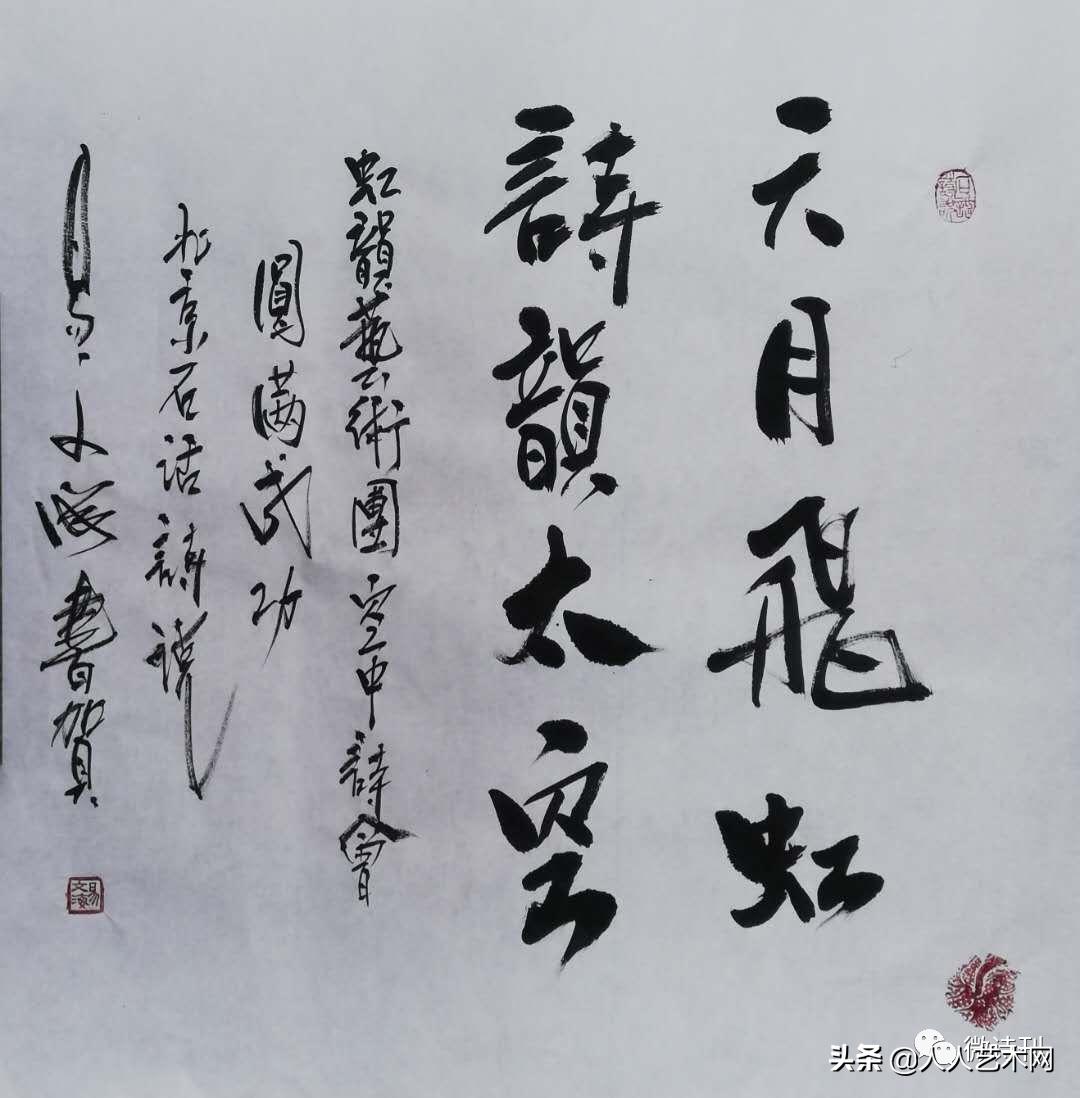 天月飛虹
詩韻太空
虹韻藝術團空中詩會
圓满成功
北京石话詩說
易文海書賀
微诗刊
头条 @人人艺术网